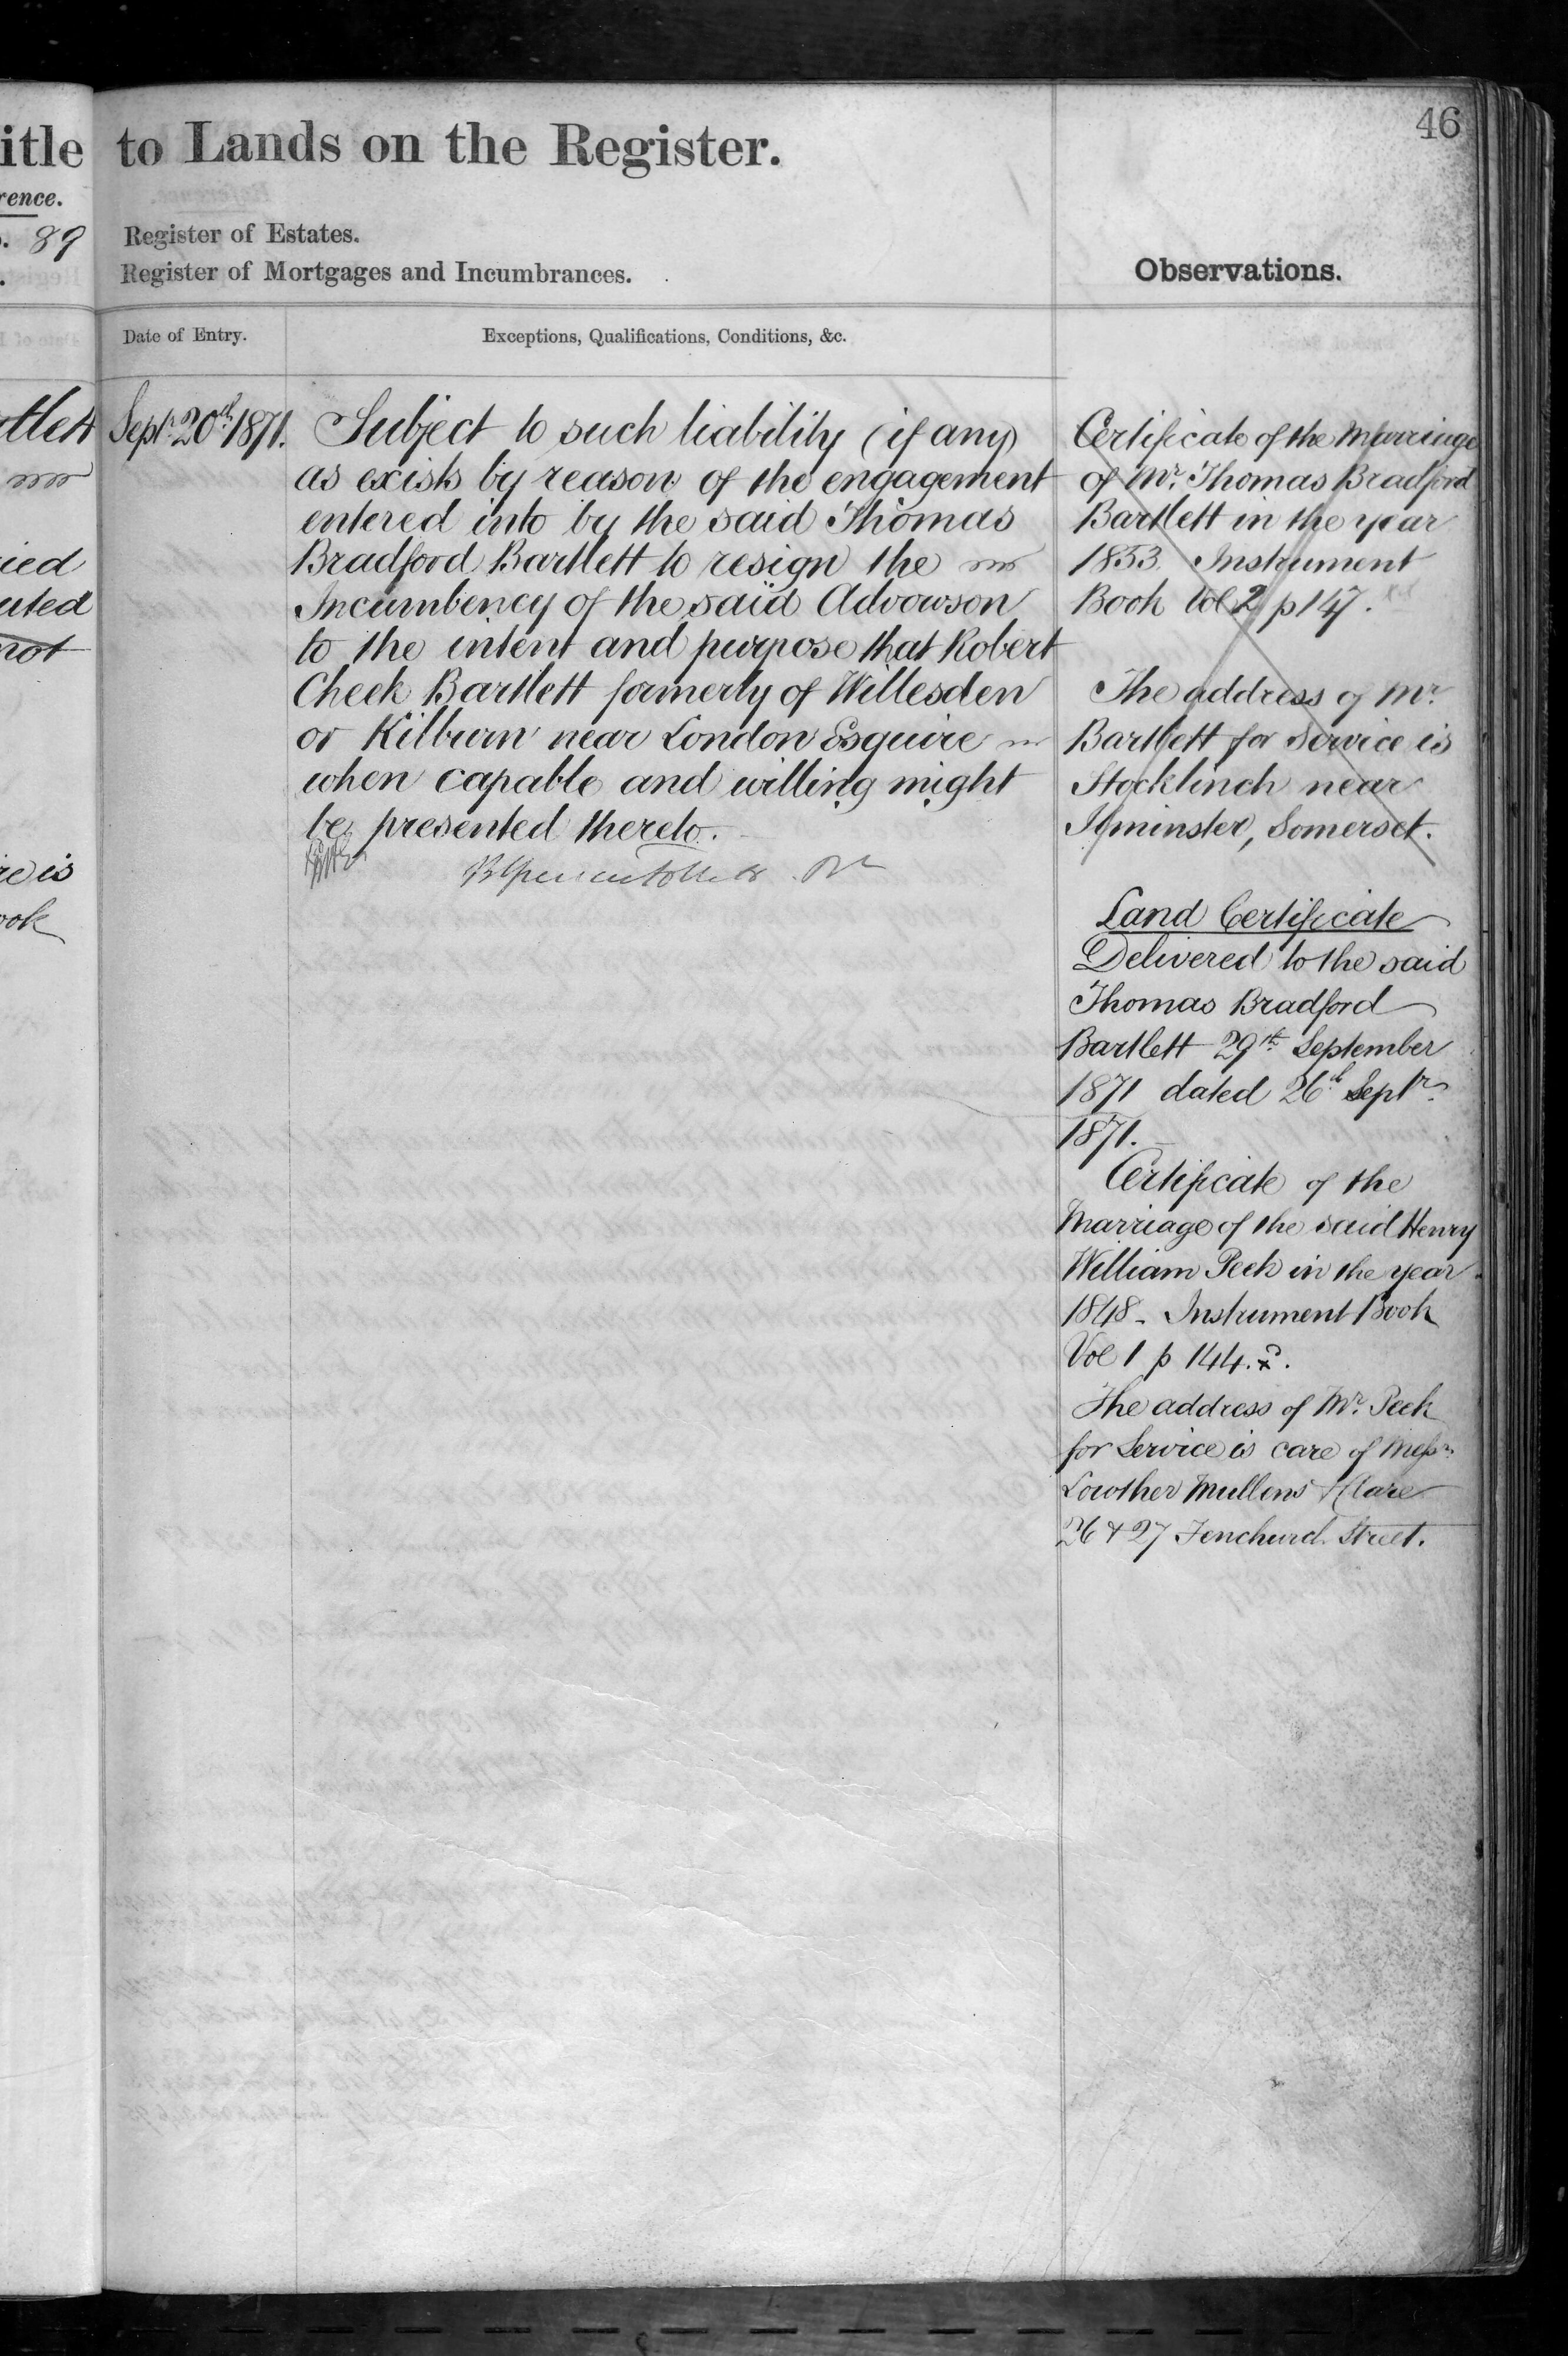 itle to Lands on the Register.
46
rence.
89
Register of Estates.
Register of Mortgages and Incumbrances.
Observations.
Date of Entry.
Exceptions, Qualifications, Conditions, &c.
Sept. 20th 1871.
Subject to such liability (if any)
as exists by reason of the engagement
entered into by the said Thomas
Bradford Bartlett to resign the
Incumbency of the said Advowson
to the intent and purpose that Robert
Cheek Bartlett formerly of Willesden
or Kilburn near London Esquire
when capable and willing might
be presented thereto.
Certificate of the Marriage
of Mr. Thomas Bradford
Bartlett in the year
1853. Instrument
Book Vol 2 p 147.
The address of Mr.
Bartlett for Service is
Stocklinch near
Ilminster, Somerset.
Land Certificate
Delivered to the said
Thomas Bradford
Bartlett 29th September
1871 dated 26th Septr.
1871.
Certificate of the
Marriage of the said Henry
William Peek in the year
1848 - Instrument Book
Vol 1 p 144.
The address of Mr. Peek
for Service is care of Messrs.
Lowther Mullens & Clare
26 & 27 Fenchurch Street.
tlett
ied
uted
not
re is
ook